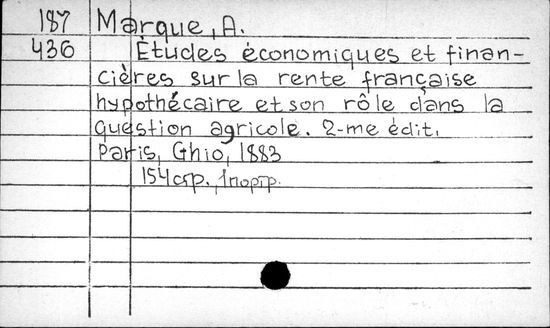 187 Marque, A.
436 Études économiques et finan-
cières sur la rente française
hypothécaire et son rôle dans la
question agricole. 2-me édit.
Paris, Ghio, 1883
154 стр., 1 портр.